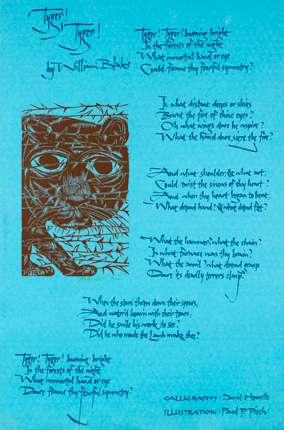 Tyger!
Tyger!
by William Blake
Tyger! Tyger! burning bright
In the forests of the night
What immortal hand or eye
Could frame thy fearful symmetry?
In what distant deeps or skies
Burnt the fire of thine eyes?
On what wings dare he aspire?
What the hand dare seize the fire?
And what shoulder & what art
Could twist the sinews of thy heart?
And when thy heart began to beat
What dread hand? & what dread feet?
What the hammer? what the chain?
In what furnace was thy brain?
What the anvil? what dread grasp
Dare its deadly terrors clasp?
When the stars threw down their spears,
And water'd heaven with their tears,
Did he smile his work to see?
Did he who made the Lamb make thee?
Tyger! Tyger! burning bright
In the forests of the night
What immortal hand or eye
Dare frame thy fearful symmetry?
CALLIGRAPHY · David Howells
ILLUSTRATION · Paul P.